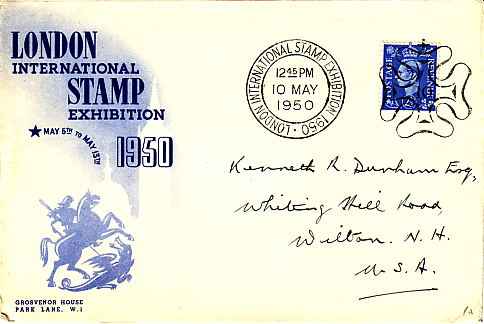 LONDON
INTERNATIONAL
STAMP
EXHIBITION
★ MAY 6TH TO MAY 13TH
1950
GROSVENOR HOUSE
PARK LANE, W.1
LONDON INTERNATIONAL STAMP EXHIBITION 1950
12 45 PM
10 MAY
1950
POSTAGE
Kenneth R. Dunham Esq,
Whiting Hill Road,
Wilton. N. H.
U. S. A.